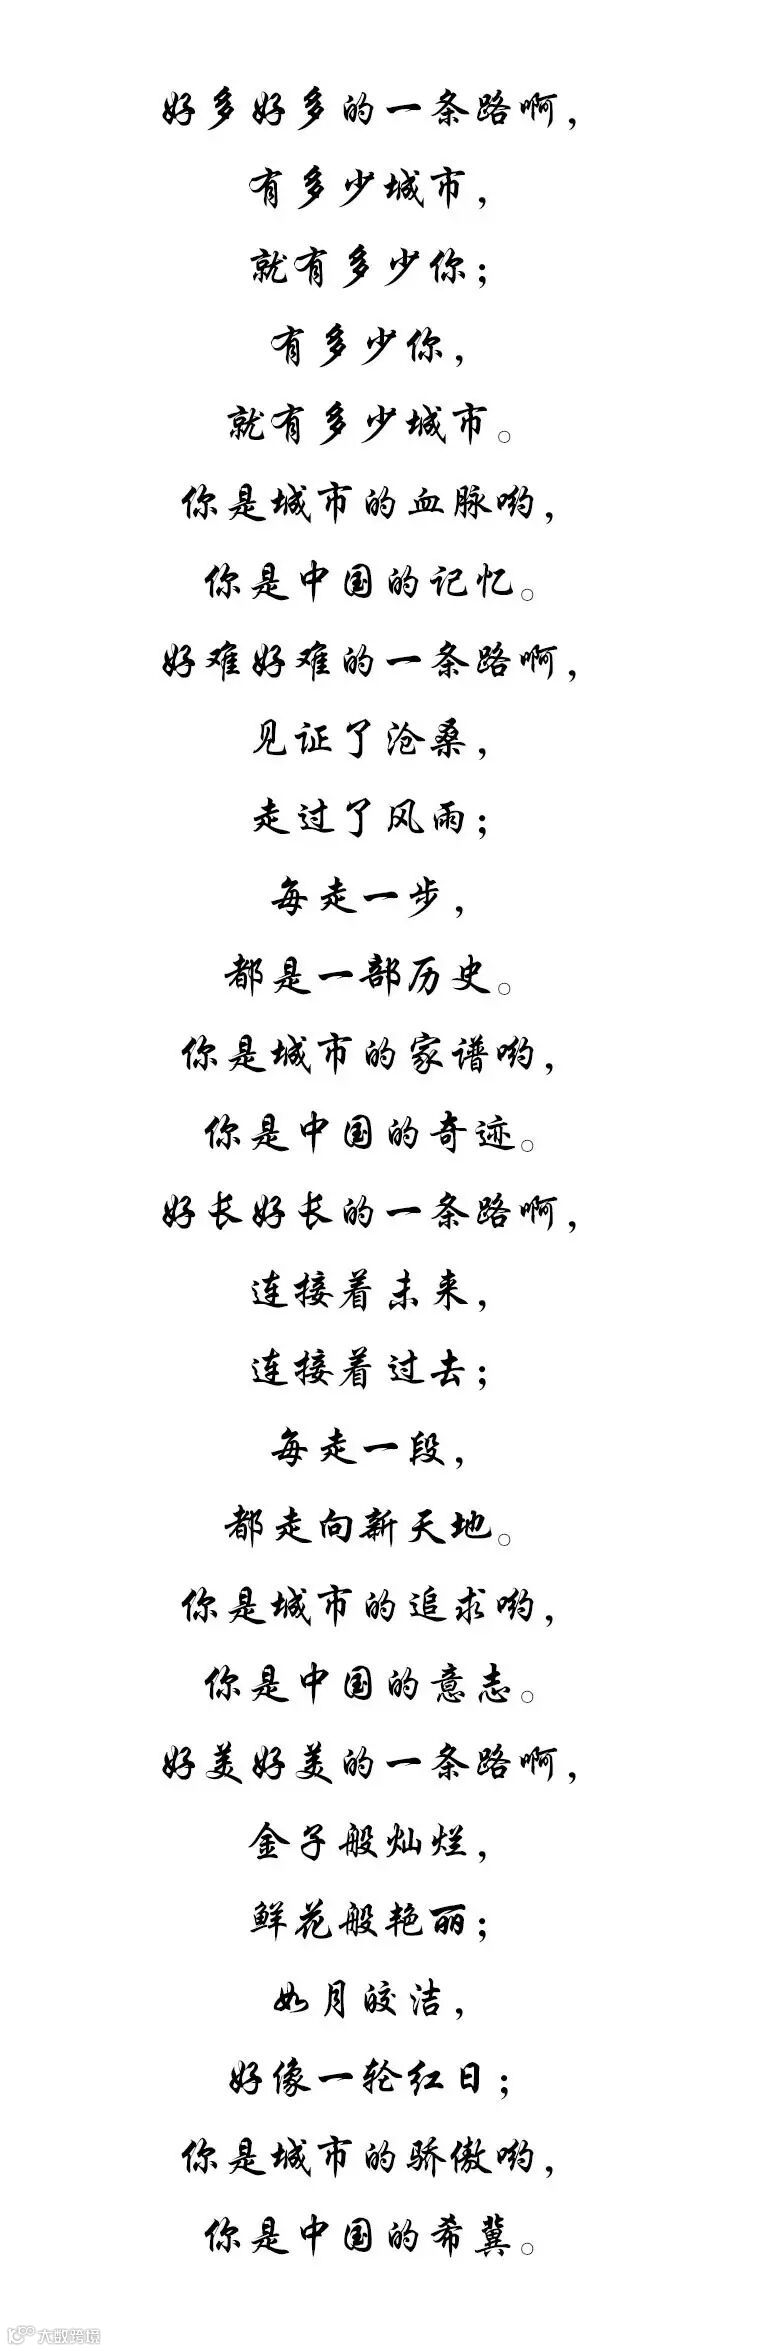 好多好多的一条路啊，
有多少城市，
就有多少你；
有多少你，
就有多少城市。
你是城市的血脉哟，
你是中国的记忆。
好难好难的一条路啊，
见证了沧桑，
走过了风雨；
每走一步，
都是一部历史。
你是城市的家谱哟，
你是中国的奇迹。
好长好长的一条路啊，
连接着未来，
连接着过去；
每走一段，
都走向新天地。
你是城市的追求哟，
你是中国的意志。
好美好美的一条路啊，
金子般灿烂，
鲜花般艳丽；
如月皎洁，
好像一轮红日；
你是城市的骄傲哟，
你是中国的希冀。
大数跨境